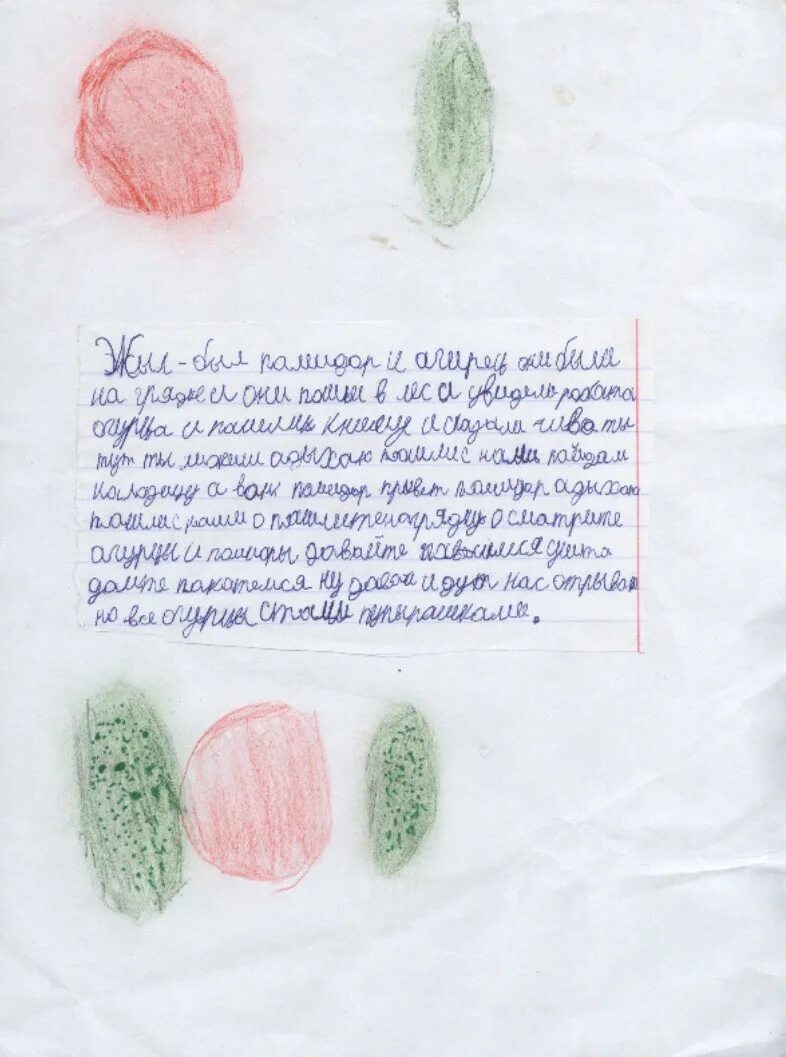 Жыл-был памидор и агирец жибыли
на грядке и они пошли в лес и увидели робота
огурца и пошли книму и сказали чиво ты
тут ты лижиш адыхаю пошлис нами пайдам
каладищу а вон памидор привет памидор адыхаю
пошлиснами о пошлитенагрядку о сматрите
агурцы и памидоры давайте
давайте пакатемся ну давай идут нас отрыва
но все огурцы стали пупырашками.